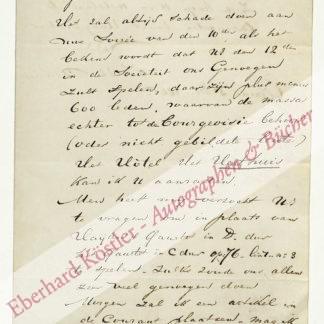 Het zal altijd schade doen aan
Uwe Soirée van den 10den als het
bekend wordt dat U den 12den
in de Societeit ons Genoegen
zult spelen, daar zijn plus minus
600 leden, waarvan de massa
echter tot de Bourgeoisie behoort
(oder nicht gebildete
Het Hôtel Het
kan ik U aanraden.
Men heeft mij verzocht U
te vragen om in plaats van
Haydn Quartet in D. dur
Quartet in C dur Op 76
te spelen. Zulks zoude ons allen
zeer veel genoegen doen
Morgen zal ik een artikel in
de Courant plaatsen
Eberhard Köstler - Autographen & Bücher